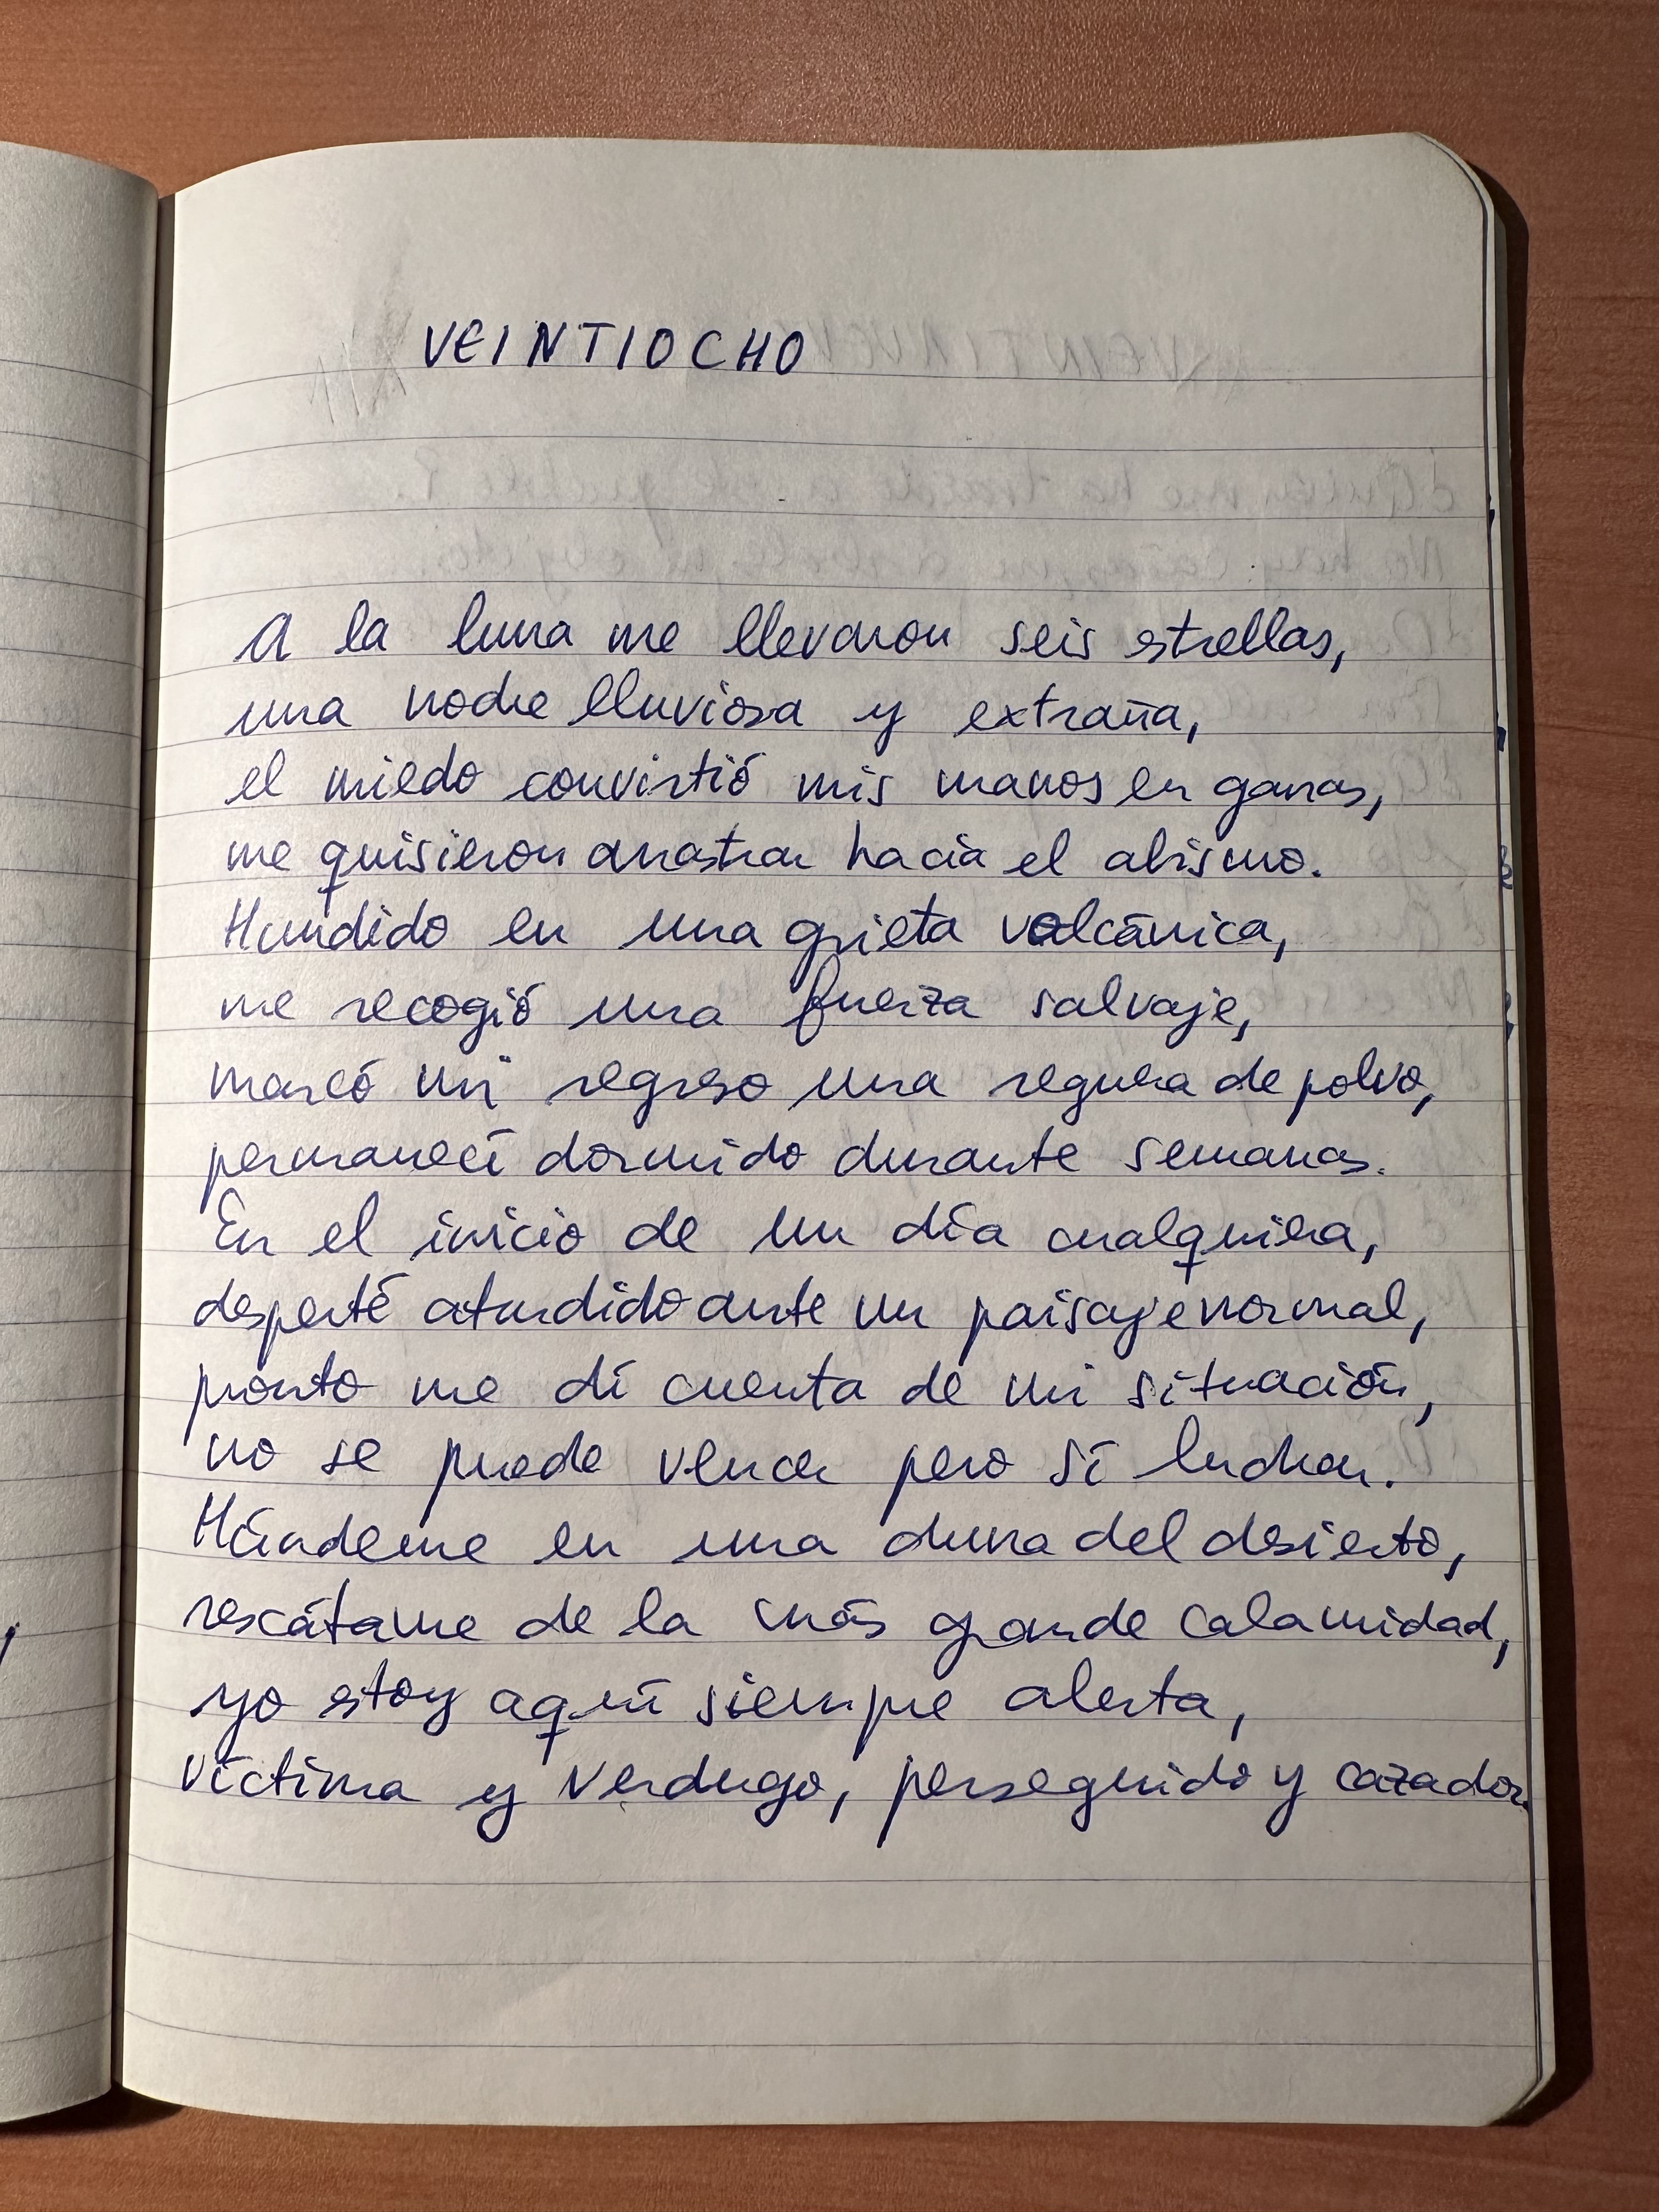 VEINTIOCHO
A la luna me llevaron seis estrellas,
una noche lluviosa y extraña,
el miedo convirtió mis manos en garras,
me quisieron arrastrar hacia el abismo.
Hundido en una grieta volcánica,
me recogió una fuerza salvaje,
marcó mi regreso una reguera de polvo,
permanecí dormido durante semanas.
En el inicio de un día cualquiera,
desperté aturdido ante un paisaje normal,
pronto me dí cuenta de mi situación,
no se puede vencer pero sí luchar.
Húndeme en una duna del desierto,
rescátame de la más grande calamidad,
yo estoy aquí siempre alerta,
víctima y verdugo, perseguido y cazador.